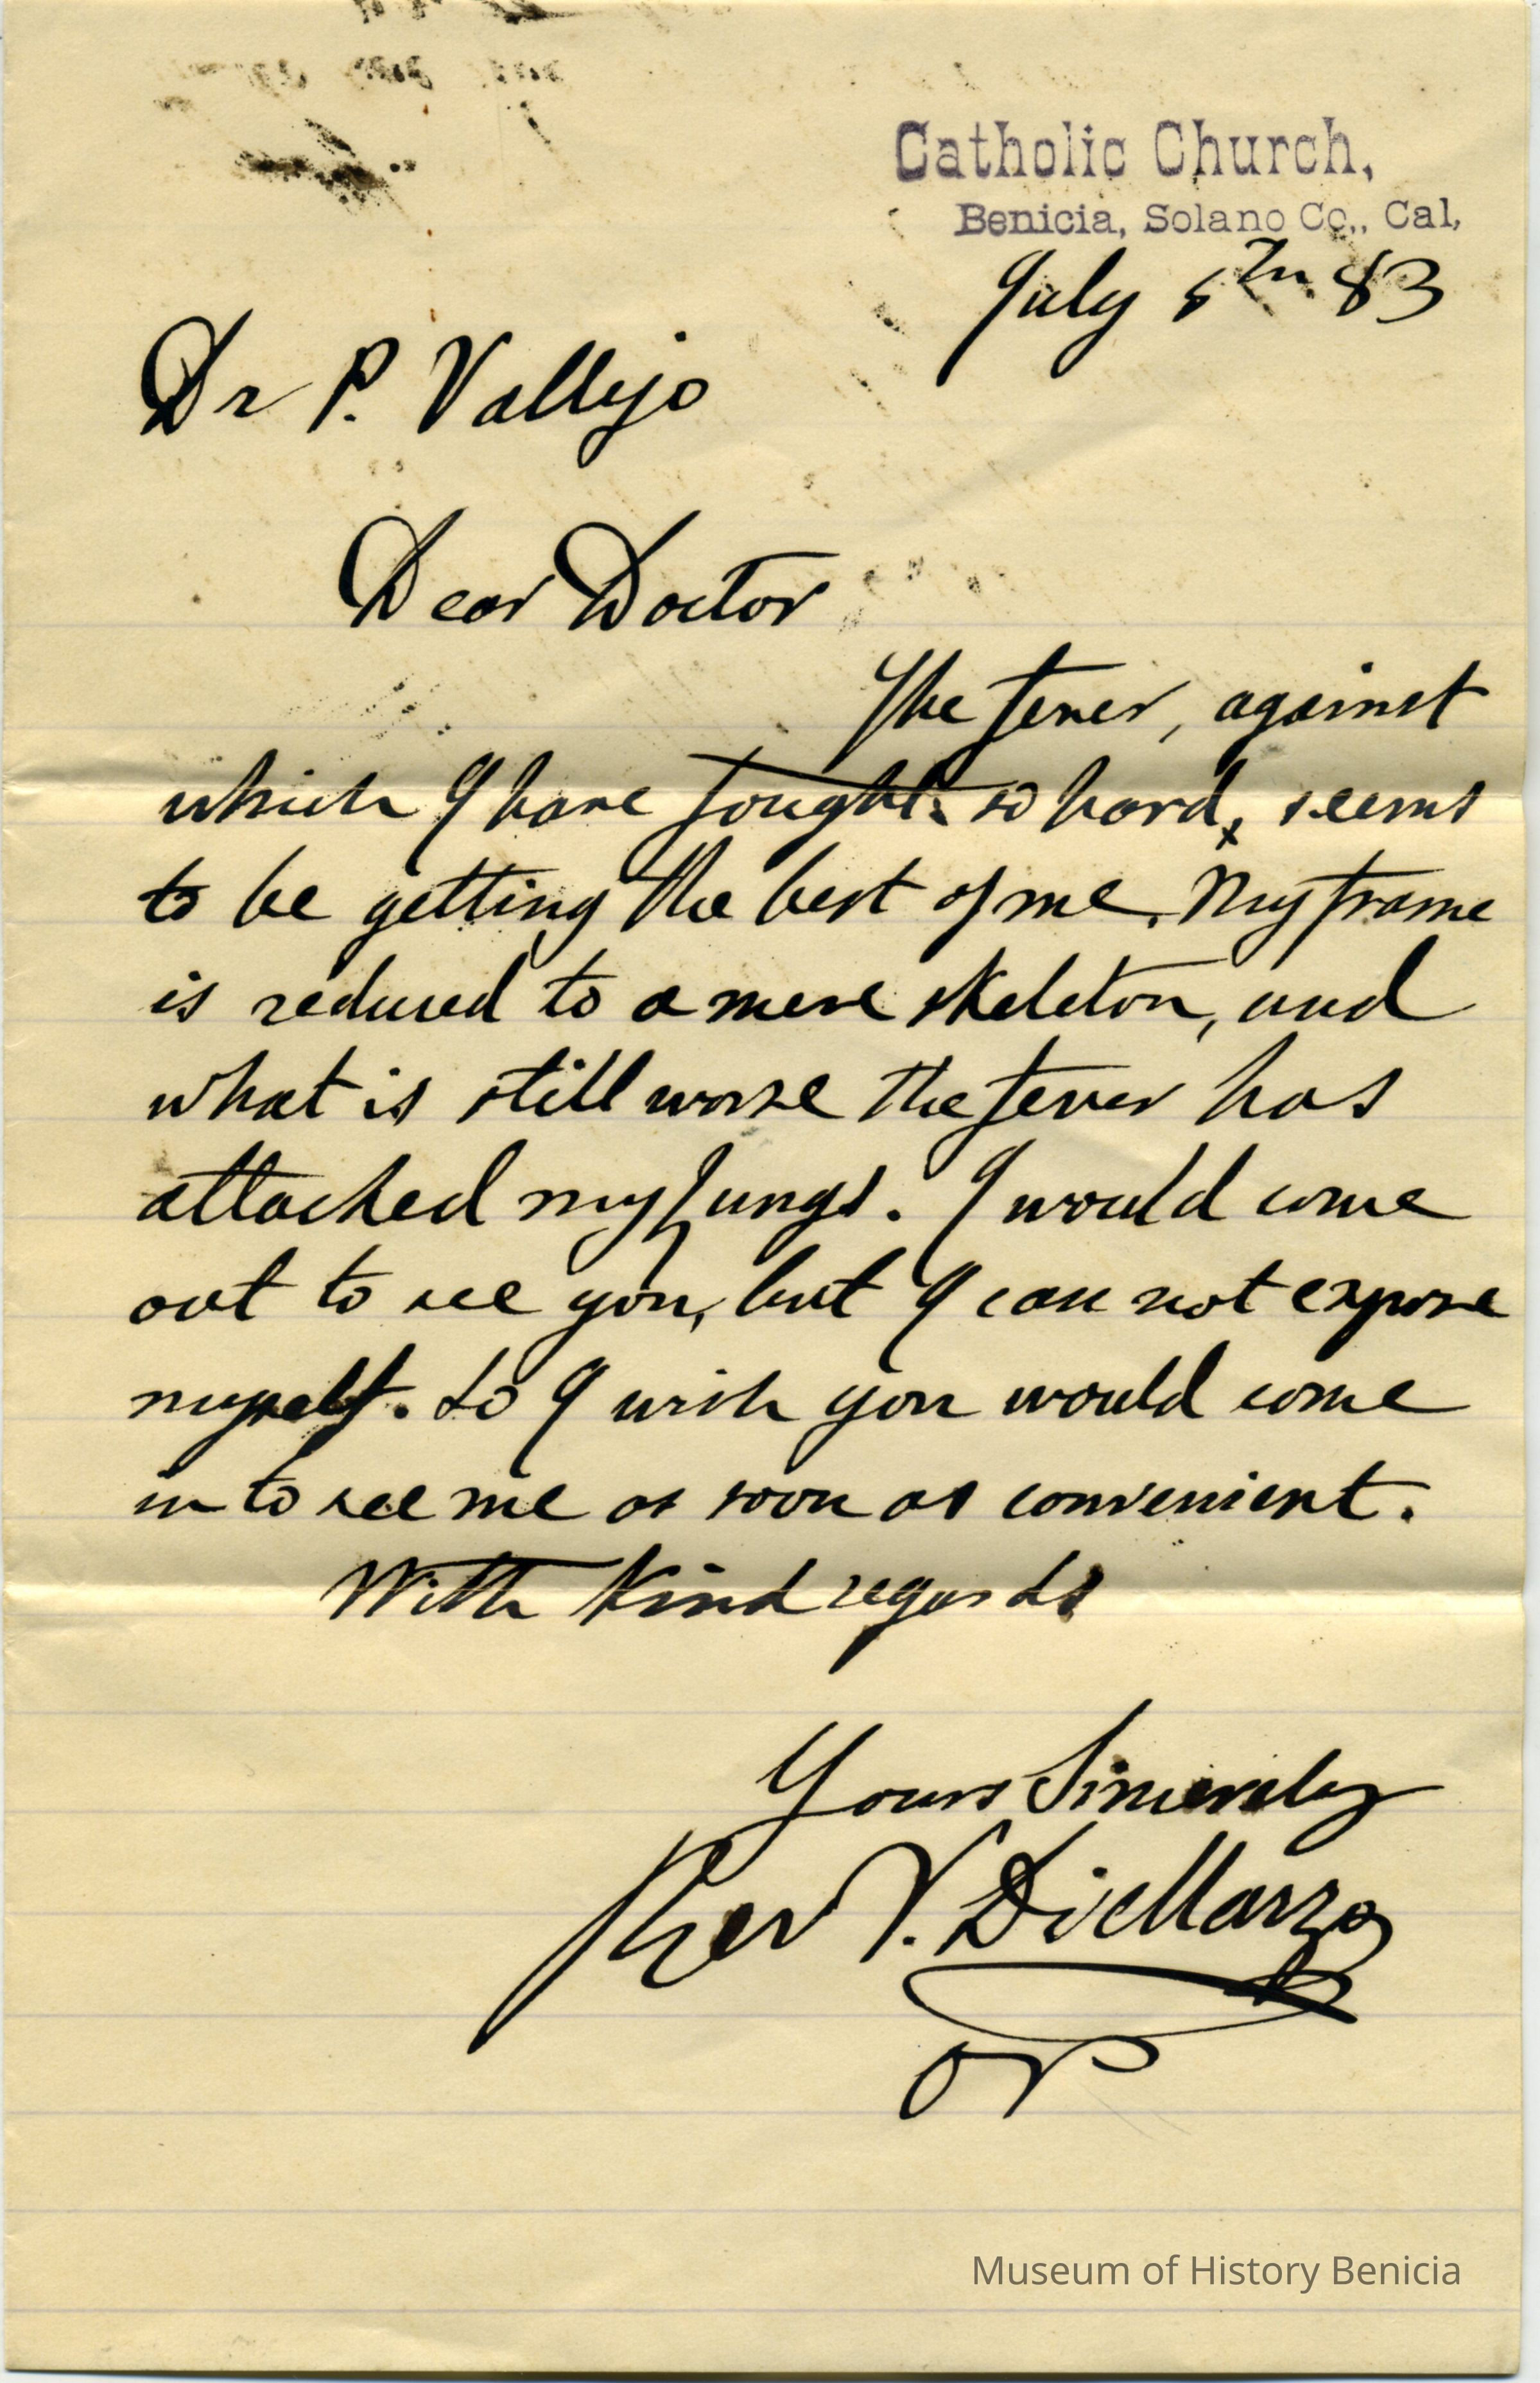 Catholic Church,
Benicia, Solano Co., Cal,
July 5th 83
Dr P. Vallejo
Dear Doctor
The fever, against
which I have fought so hard, seems
to be getting the best of me. My frame
is reduced to a mere skeleton, and
what is still worse the fever has
attacked my lungs. I would come
out to see you, but I can not expose
myself. So I wish you would come
in to see me as soon as convenient.
With Kind regards
Yours Sincerely
Rev V. DiMarzo
OP
Museum of History Benicia